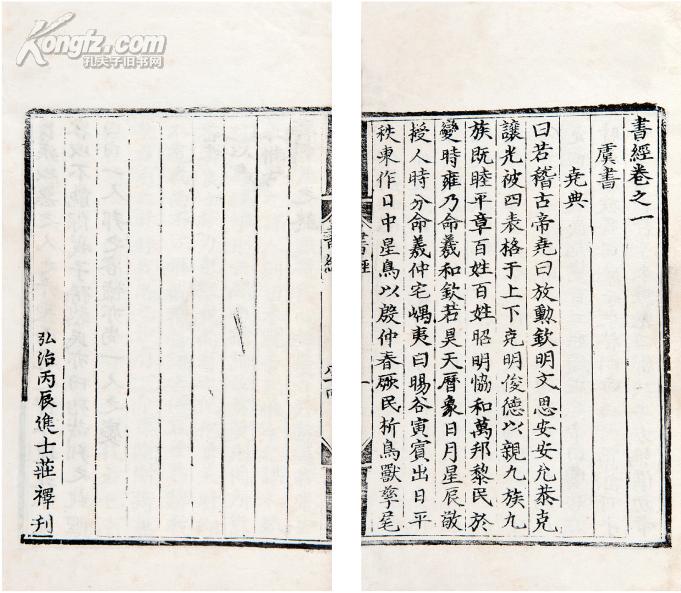 書經卷之一
虞書
堯典
曰若稽古帝堯曰放勲欽明文思安安允恭克
讓光被四表格于上下克明俊德以親九族九
族既睦平章百姓百姓昭明恊和萬邦黎民於
變時雍乃命羲和欽若昊天曆象日月星辰敬
授人時分命羲仲宅嵎夷曰暘谷寅賓出日平
秩東作日中星鳥以殷仲春厥民析鳥獸孳尾
書經
一
書經
弘治丙辰進士莊襗刊
Kongfz.com
孔夫子旧书网